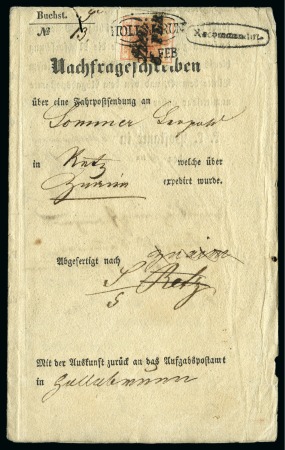 Buchst.
№ 13
HOLLABRUNN
FEB
Recommandirt
Nachfrageschreiben
über eine Fahrpostsendung an
Sommer Leopold
in Retz welche über
Znaim expedirt wurde.
Znaim
Abgefertigt nach Retz
5/5
Mit der Auskunft zurück an das Aufgabspostamt
in Hollabrunn